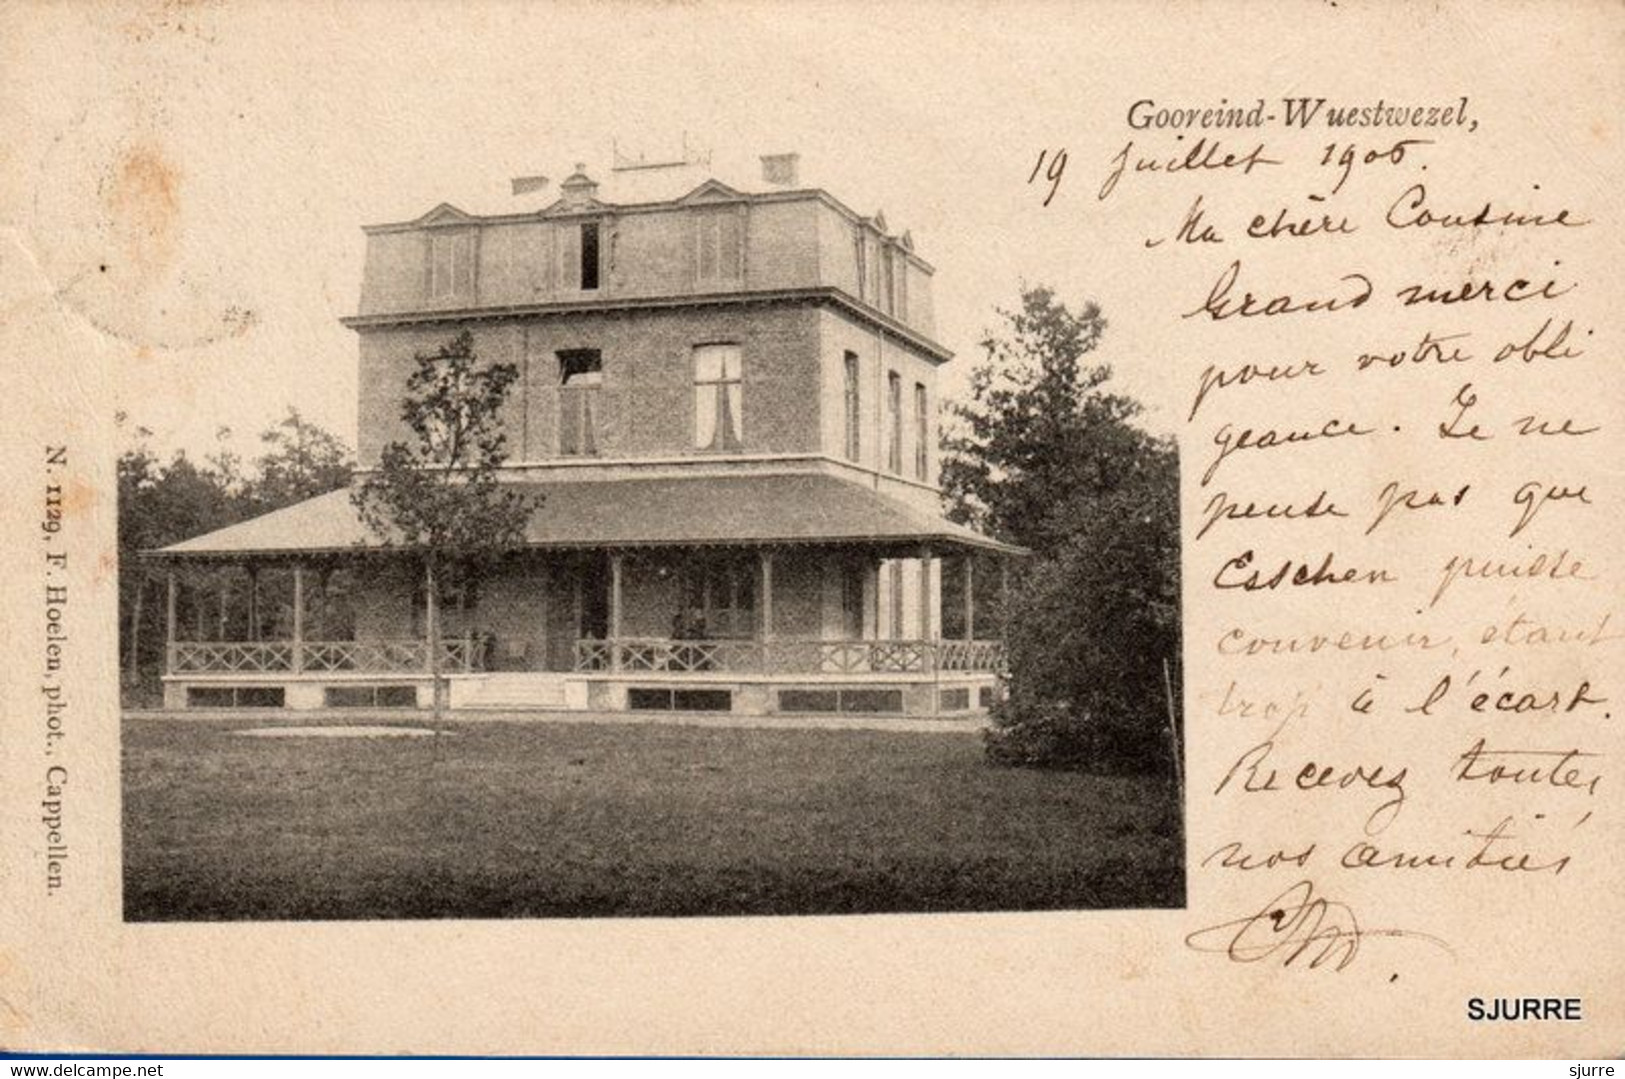 Gooreind-Wuestwezel,
19 Juillet 1906.
Ma chère Cousine
Grand merci
pour votre obli
geance. Je ne
pense pas que
Esschen puisse
convenir, étant
trop à l'écart.
Recevez toutes
nos amitiés
N. 1129, F. Hoelen, phot., Cappellen.
SJURRE
Delcampe.net
sjurre